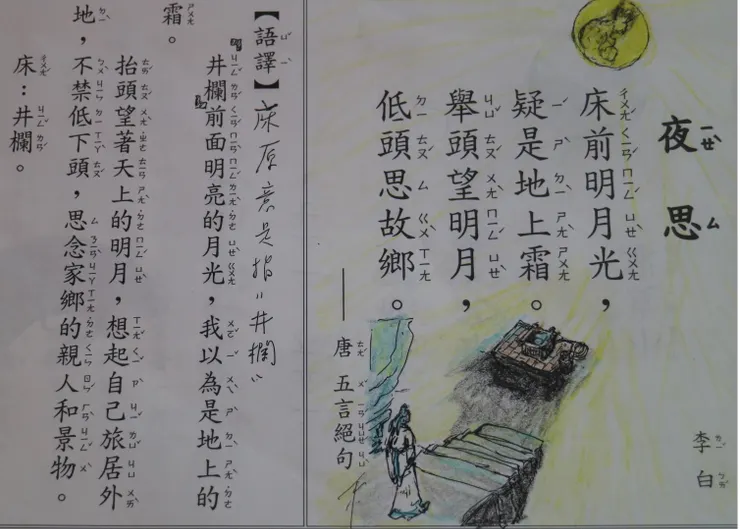 夜思
李白
床前明月光，
疑是地上霜。
舉頭望明月，
低頭思故鄉。
——唐 五言絕句
【語譯】床原意是指"井欄"
井欄前面明亮的月光，我以為是地上的
霜。
抬頭望著天上的明月，想起自己旅居外
地，不禁低下頭，思念家鄉的親人和景物。
床：井欄。